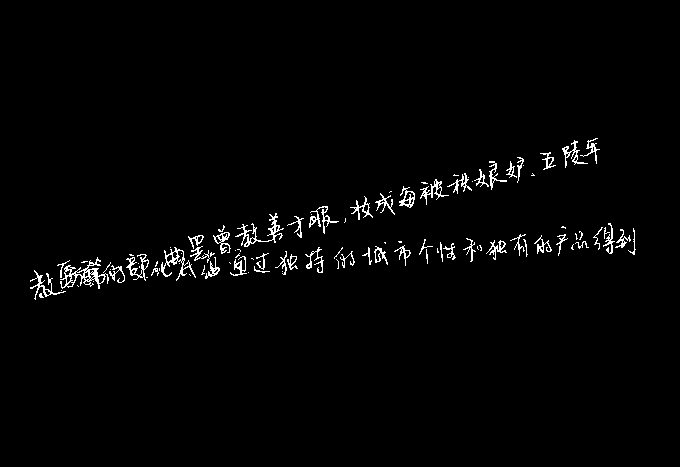 部曲罢曾教善才服,妆成每被秋娘妒、五陵年
化底蕴通过独特的城市个性和独有的产品得到